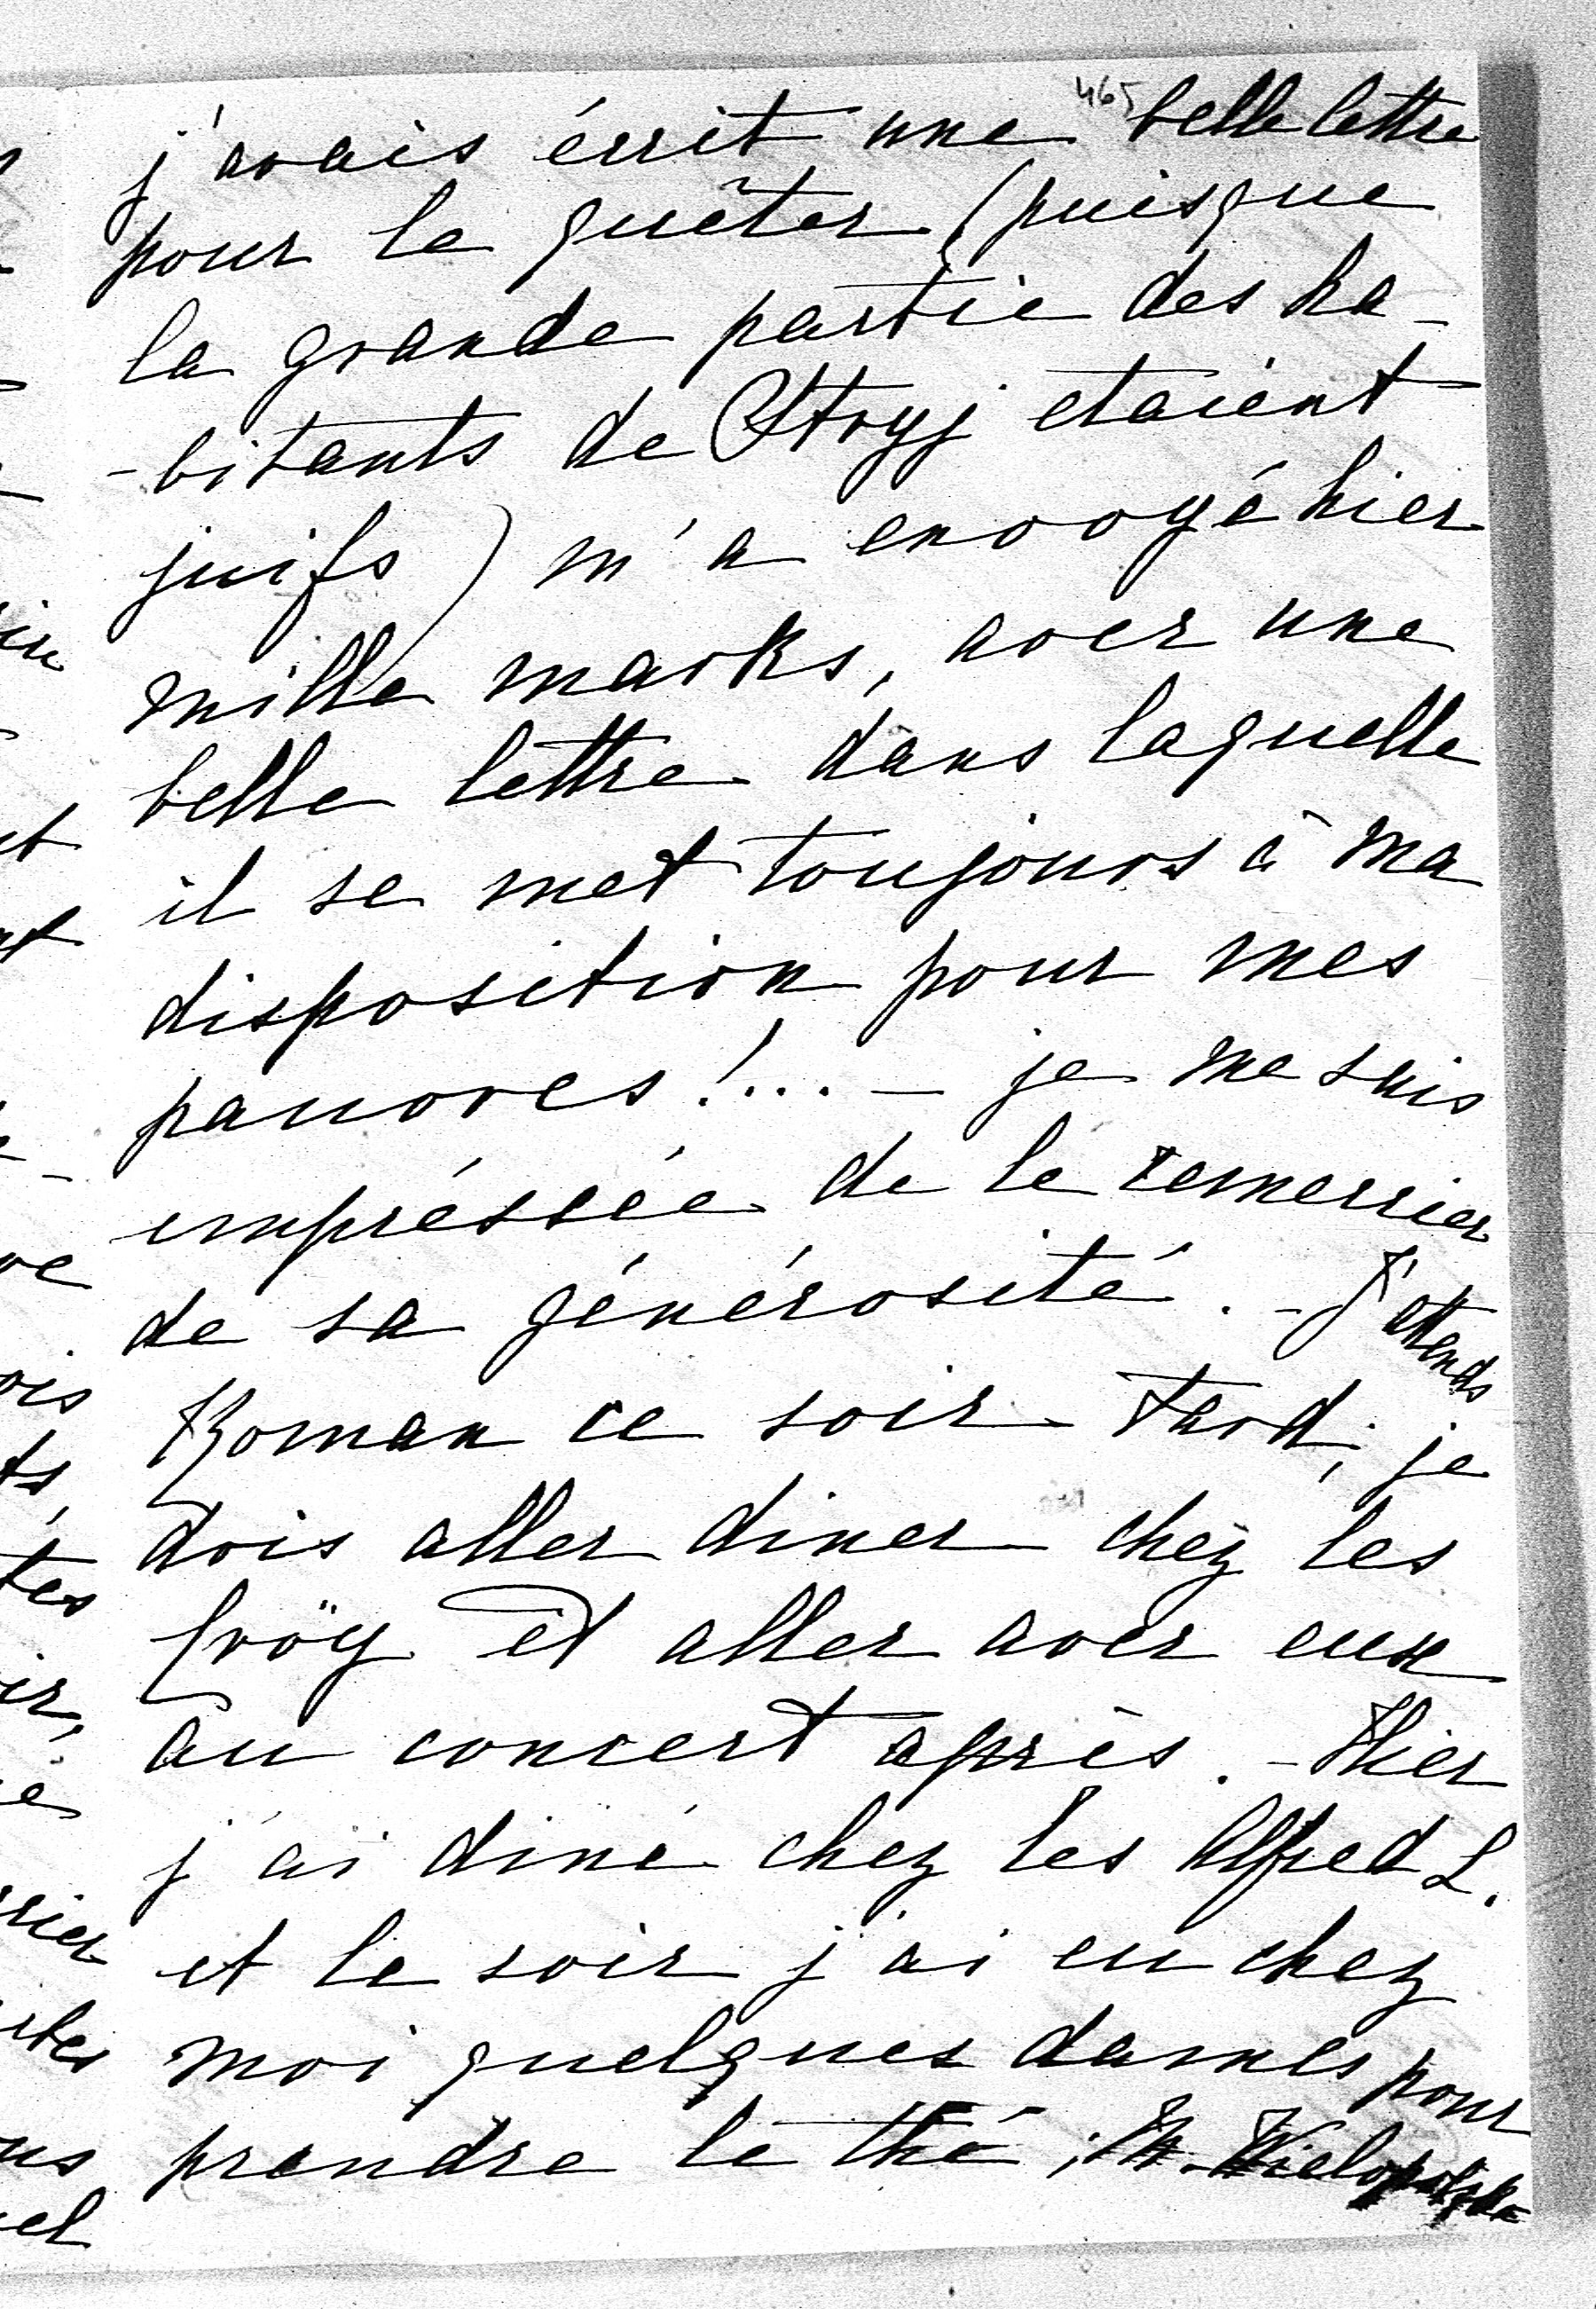 465
j'avais écrit une belle lettre
pour le quêter (puisque
la grande partie des ha-
-bitants de Stryj etaient
juifs) m'a envoyé hier
mille marks, avec une
belle lettre dans laquelle
il se met toujours à ma
disposition pour mes
pauvres!... - je me suis
empréssée de le remercier
de sa générosité. - J'attends
Roman ce soir tard; je
dois aller diner chez les
Croÿ et aller avec eux
au concert après. - Hier
j'ai diné chez les Alfred L.
et le soir j'ai eu chez
moi quelques dames pour
prendre le thé; M. Wielopolska